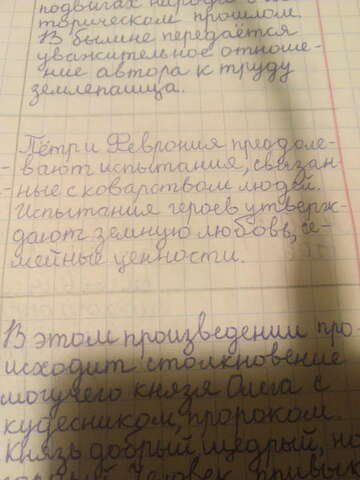 подвигах народа в ис-
торическом прошлом.
В былине передаётся
уважительное отноше-
ние автора к труду
землепашца.
Пётр и Феврония преодоле-
-вают испытания, связан-
-ные с коварством людей.
Испытания героев утверж-
дают земную любовь, се-
мейные ценности.
В этом произведении про-
исходит столкновение
могучего князя Олега с
кудесником, пророком.
Князь добрый, щедрый, но
человек привык